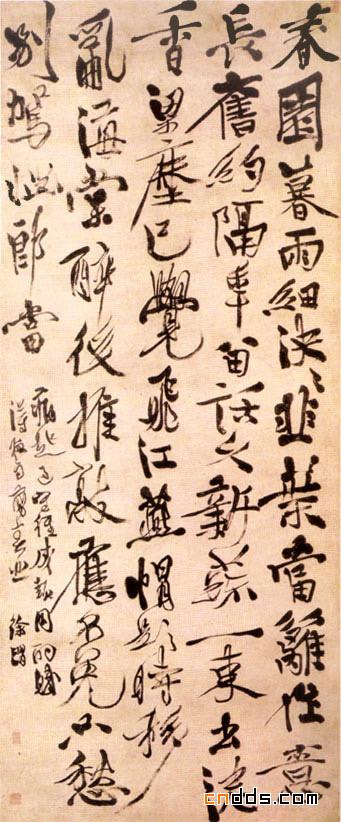 春園暮雨細泱泱韭葉當籬作意
長舊約隔年留話久新蔬一束出泥
香梁塵已覺飛江燕帽影時移
亂海棠醉後推敲應不免只愁
別駕惱郎當
徐渭
cndds.com